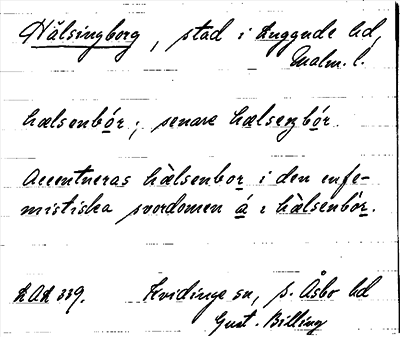 Hälsingborg, stad i Luggude hd,
Malm. l.
hælsenbór; senare hælseŋbór
Accentueras hælsenbor i den eufe-
mistiska svordomen á i hælsenbór.
LAL 339. Kvidinge sn, s. Åsbo hd
Gust. Billing